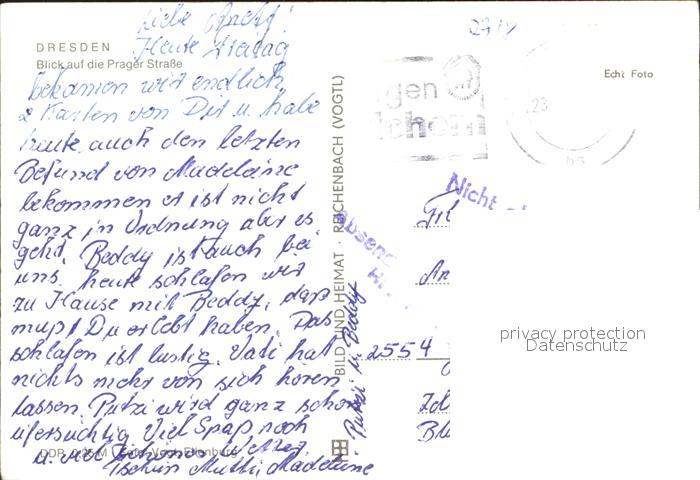 DRESDEN
Blick auf die Prager Straße
Echt Foto
Heute Freitag
bekamen wir endlich
2 Karten von Dir u. habe
heute auch den letzten
Befund von Madeleine
bekommen er ist nicht
ganz in Ordnung aber es
geht. Beddy ist auch bei
uns. heute schlafen wir
zu Hause mit Beddy, dass
mußt Du erlebt haben. Das
schlafen ist lustig. Vati hat
nichts mehr von sich hören
lassen. Putzi wird ganz schön
eifersüchtig Viel Spaß noch
u. viel schönes Wetter
Tschüß Mutti, Madeleine
Putzi u. Beddy
BILD UND HEIMAT · REICHENBACH (VOGTL)
23
Nicht
Absend
2554
privacy protection
Datenschutz